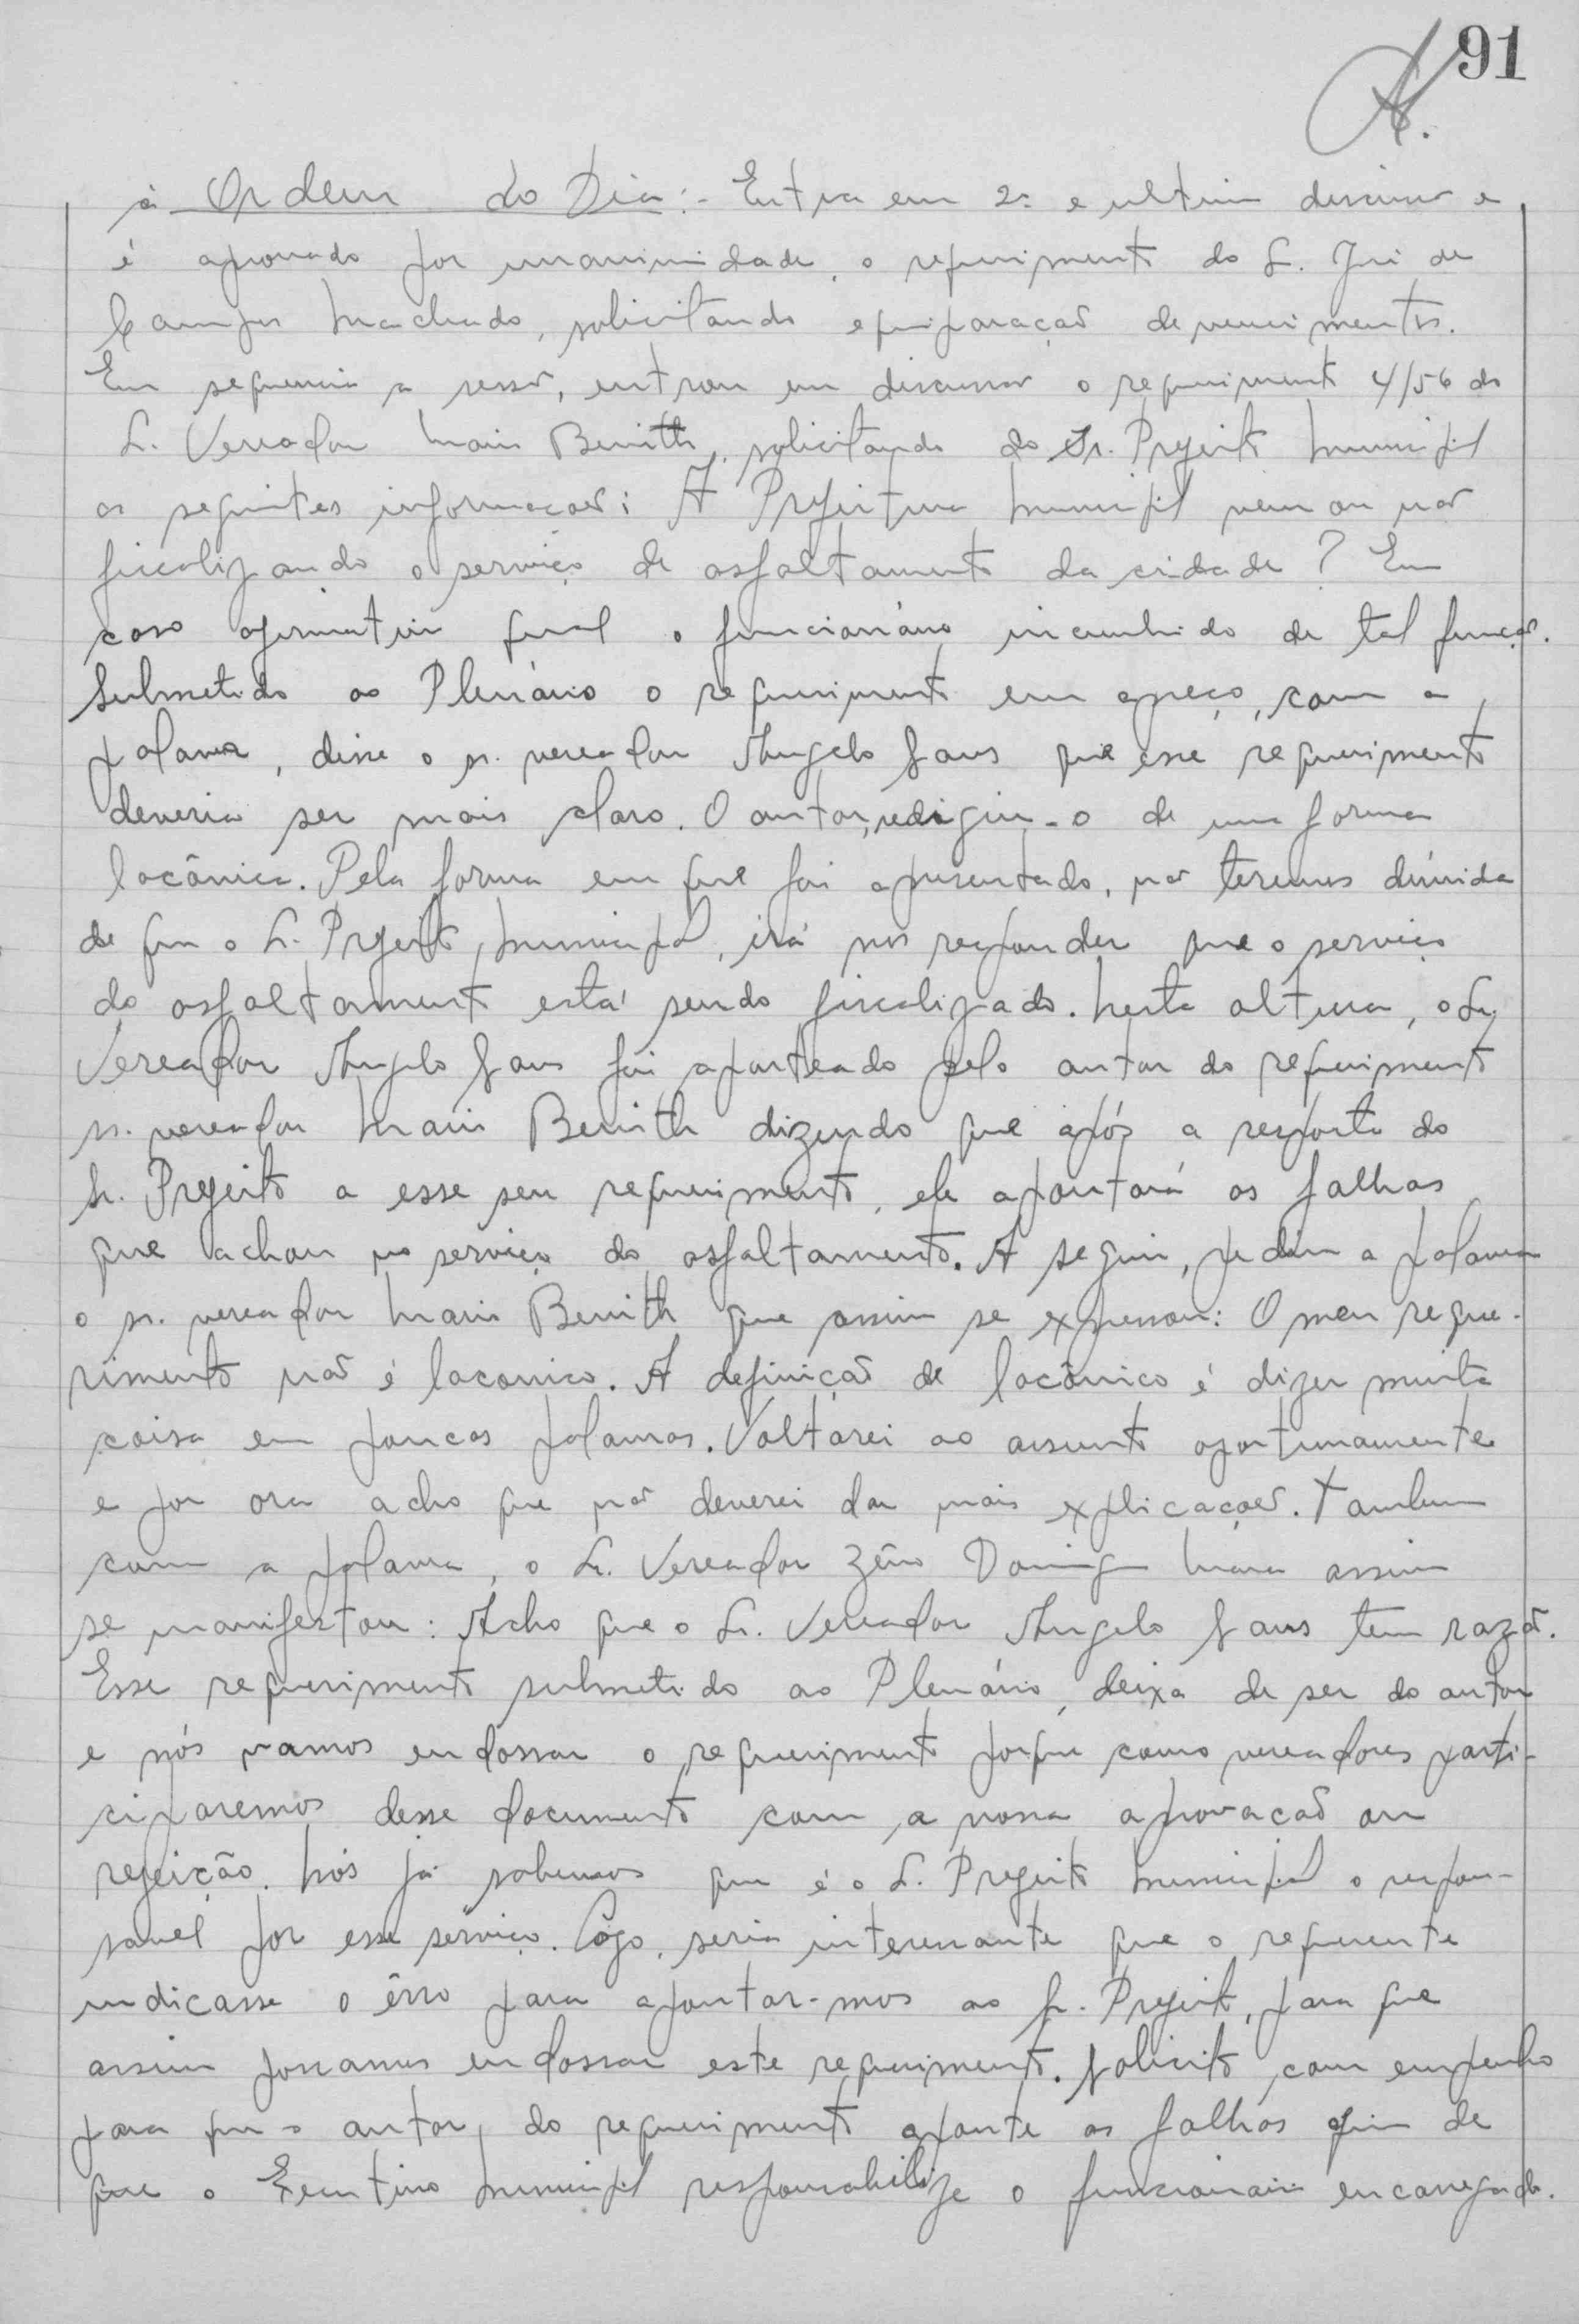 91
à Ordem do Dia:- Entra em 2ª e ultima discussão e
é aprovado por unanimidade, o requerimento do Sr. Jui de
Campos Machado, solicitando equiparação de vencimentos.
Em sequencia a sessão, entrou em discussão o requerimento 4/56 do
Sr. Vereador Mario Benith, solicitando do Sr. Prefeito Municipal
as seguintes informações: A Prefeitura Municipal vem ou não
fiscalizando o serviço de asfaltamento da cidade? Em
caso afirmativo qual o funcionário incumbido de tal função.
Submetido ao Plenário o requerimento em apreço, com a
palavra, disse o sr. vereador Angelo Sans que esse requerimento
deveria ser mais claro. O autor, redigiu-o de uma forma
lacônica. Pela forma em que foi apresentado, não teremos dúvida
de que o Sr. Prefeito Municipal, irá nos responder que o serviço
do asfaltamento está sendo fiscalizado. Nesta altura, o Sr.
Vereador Angelo Sans foi aparteado pelo autor do requerimento
sr. vereador Mario Benith dizendo que após a resposta do
Sr. Prefeito a esse seu requerimento, ele apontará as falhas
que achou no serviço do asfaltamento. A seguir, pediu a palavra
o sr. vereador Mario Benith que assim se expressou: O meu reque-
rimento não é laconico. A definição de lacônico é dizer muita
coisa em poucas palavras. Voltarei ao assunto oportunamente
e por ora acho que não deverei dar mais explicações. Tambem
com a palavra, o Sr. Vereador Zêno Maia assim
se manifestou: Acho que o Sr. Vereador Angelo Sans tem razão.
Esse requerimento submetido ao Plenário, deixa de ser do autor
e nós vamos endossar o requerimento porque como vereadores parti-
ciparemos desse documento com a nossa aprovação ou
rejeição. Nós já sabemos que é o Sr. Prefeito Municipal o respon-
savel por esse serviço. Logo, seria interessante que o requerente
indicasse o êrro para apontar-mos ao Sr. Prefeito, para que
assim possamos endossar este requerimento. Solicito, com empenho
para que o autor, do requerimento aponte as falhas afim de
que o Executivo Municipal responsabilize o funcionario encarregado.